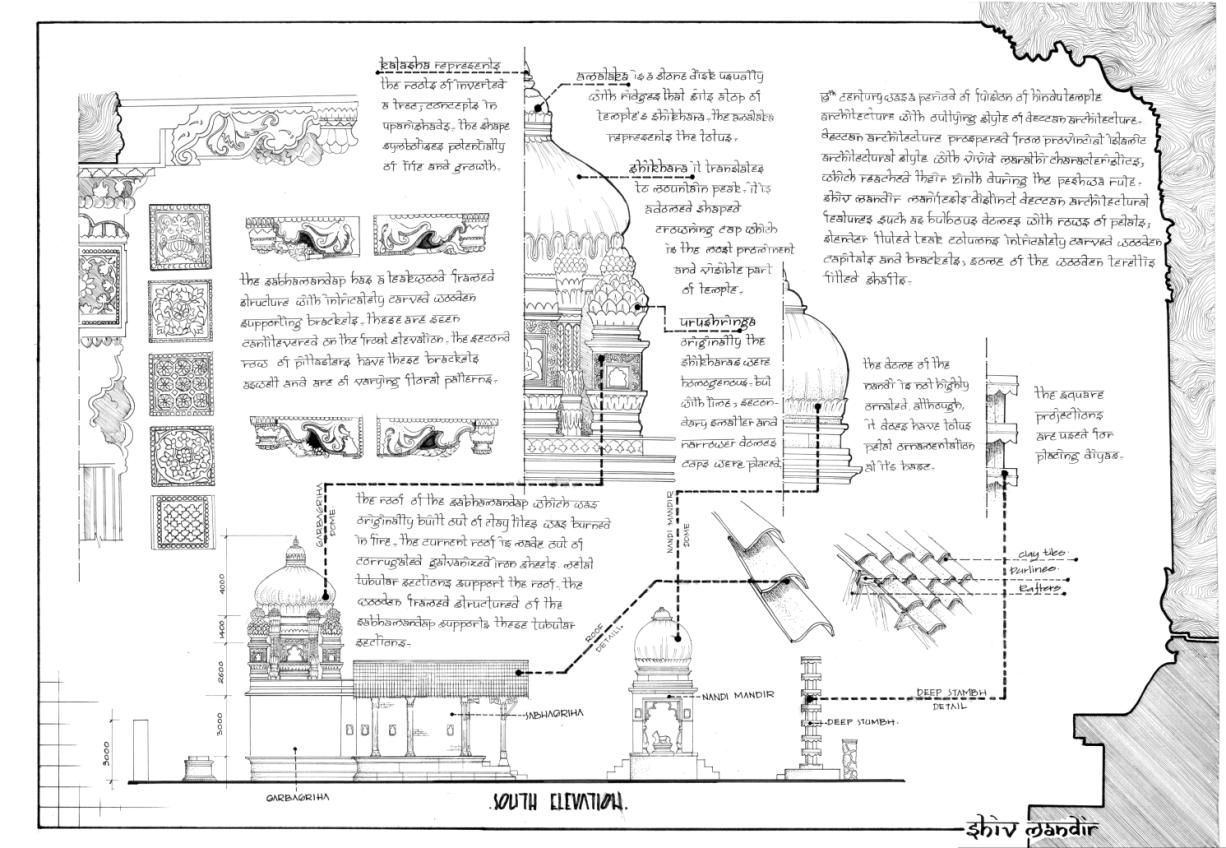 kalasha represents
the roots of inverted
a tree; concepts in
upanishads. the shape
symbolises potentially
of life and growth.
amalaka is a stone disk usually
with ridges that sits atop of
temple's shikhara. the amalaka
represents the lotus.
shikhara it translates
to mountain peak. it is
a domed shaped
crowning cap which
is the most prominent
and visible part
of temple.
urushringa
originally the
shikharas were
homogenous. but
with time, secon-
dary smaller and
narrower domes
caps were placed.
18th century was a period of fusion of hindu temple
architecture with outlying style of deccan architecture.
deccan architecture prospered from provincial islamic
architectural style with vivid marathi characteristics,
which reached their zinth during the peshwa rule.
shiv mandir manifests distinct deccan architectural
features such as bulbous domes with rows of petals,
slender fluted teak columns intricately carved wooden
capitals and brackets, some of the wooden terellis
fitted shafts.
the sabhamandap has a teakwood framed
structure with intricately carved wooden
supporting brackets. these are seen
cantilevered on the front elevation. the second
row of pillasters have these brackets
aswell and are of varying floral patterns.
the dome of the
nandi is not highly
ornated. although,
it does have lotus
petal ornamentation
at it's base.
the square
projections
are used for
placing diyas.
the roof of the sabhamandap which was
originally built out of clay tiles was burned
in fire. the current roof is made out of
corrugated galvanized iron sheets. metal
tubular sections support the roof. the
wooden framed structured of the
sabhamandap supports these tubular
sections.
GARBAGRIHA
DOME
NANDI MANDIR
DOME
ROOF
DETAIL
clay tiles.
Purlines.
Rafters
4000
1400
2600
3000
3000
NANDI MANDIR
SABHAGRIHA
DEEP STAMBH
DETAIL
DEEP STUMBH.
GARBAGRIHA
SOUTH ELEVATION.
shiv mandir